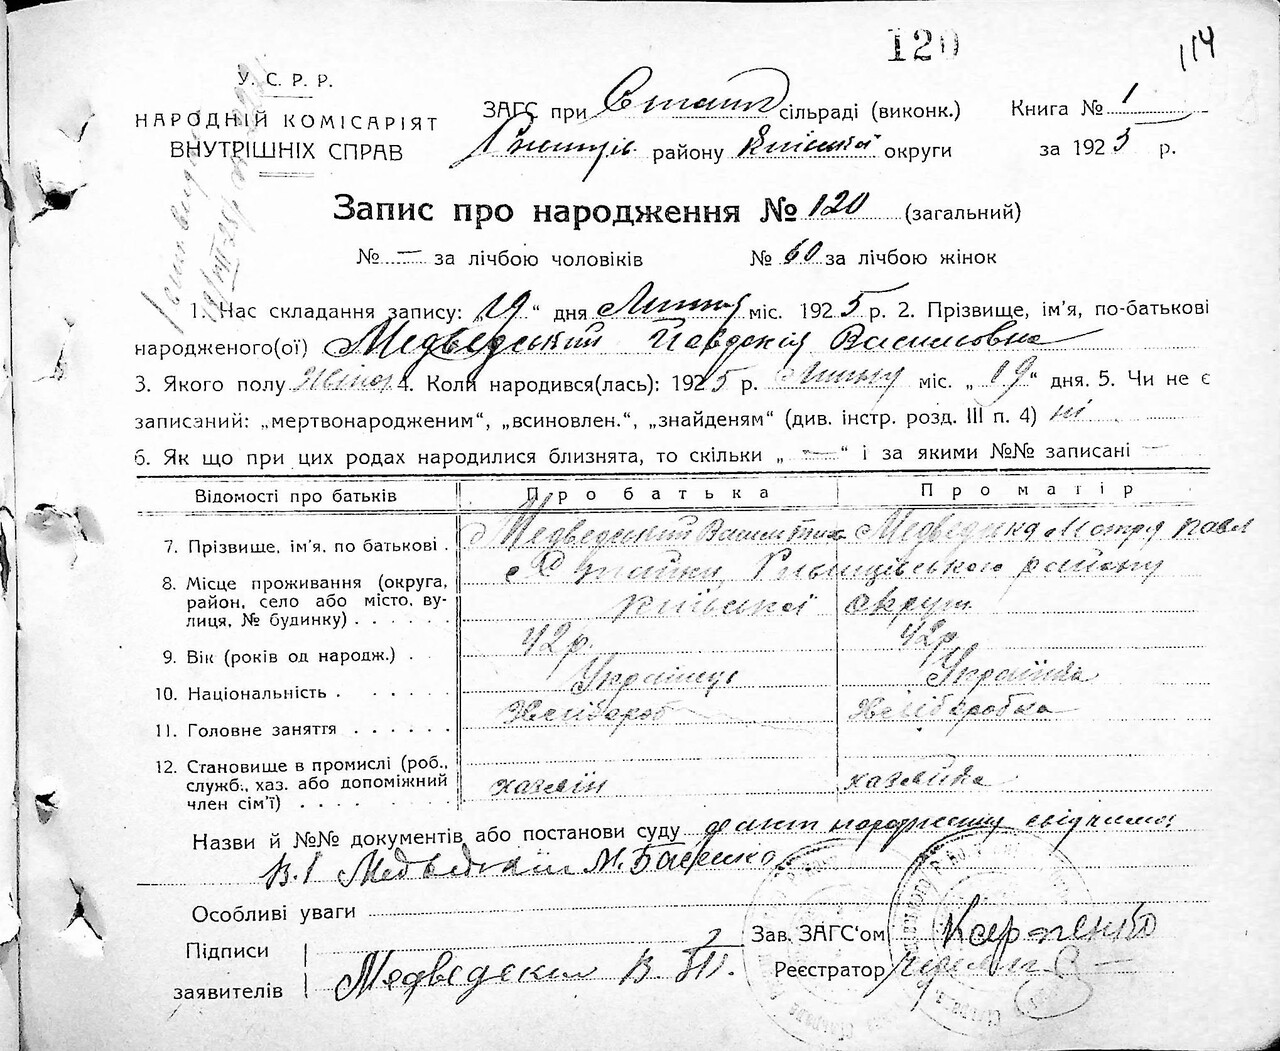 120
114
У. С. Р. Р.
НАРОДНІЙ КОМІСАРІЯТ
ВНУТРІШНІХ СПРАВ
ЗАГС при сільраді (виконк.)
району Київської округи
Книга № 1
за 1925 р.
Запис про народження № 120 (загальний)
№ — за лічбою чоловіків № 60 за лічбою жінок
1. Час складання запису: „19“ дня Липня міс. 1925 р. 2. Прізвище, ім'я, по-батькові
народженого(ої) Медведський Явдокія Василівна
3. Якого полу Жіноч 4. Коли народився(лась): 1925 р. Липня міс. „19“ дня. 5. Чи не є
записаний: „мертвонародженим“, „всиновлен.“, „знайденям“ (див. інстр. розд. III п. 4) ні
6. Як що при цих родах народилися близнята, то скільки „ — “ і за якими №№ записані —
Відомості про батьків Про батька Про матір
7. Прізвище, ім'я, по батькові . Медведський Васил Медведська Мотря Павл
8. Місце проживання (округа, району
район, село або місто, ву- Київської округи
лиця, № будинку) . . . . . .
9. Вік (років од народж.) . 42р. 42р.
10. Національність . . . . . Українець Українка
11. Головне заняття . . . . . . Хлібороб Хліборобка
12. Становище в промислі (роб.,
служб., хаз. або допоміжний хазяїн хазяйка
член сім'ї) . . . . . . .
Назви й №№ документів або постанови суду факт народження свідчили
Медведский М.
Особливі уваги
Підписи
заявителів Медведский В.
Зав. ЗАГС'ом Карпенко
Реєстратор